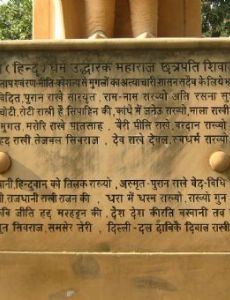 (हिन्दू) धर्म उद्धारक महाराज छत्रपति शिवा
मुगलों का अत्याचारी शासन सदैव के लिये
पुरान राखे सारयुत, राम-नाम राख्यो अति रसना
चोटी, रोटी राखी है सिपाहिन की, कांधे में जनेऊ राख्यो, माला राखी
मुगल, मरोरि राखे पातसाह, बैरी पीसि राखे, बरदान राख्यो
हद्द राखी तेजबल सिवराज, देव राखे देवल, स्वधर्म राख्यो
हिन्दुवान को तिलक राख्यो, अस्मृत-पुरान राखे बेद-विधि
राजधानी राखी राजन की, धरा में धरम राख्यो, राख्यो गुन
जीति हद्द मरहट्टन की, देस देस कीरति बखानी तब
सिवराज, समसेर तेरी, दिल्ली-दल दाबिकै दिवाल राखी